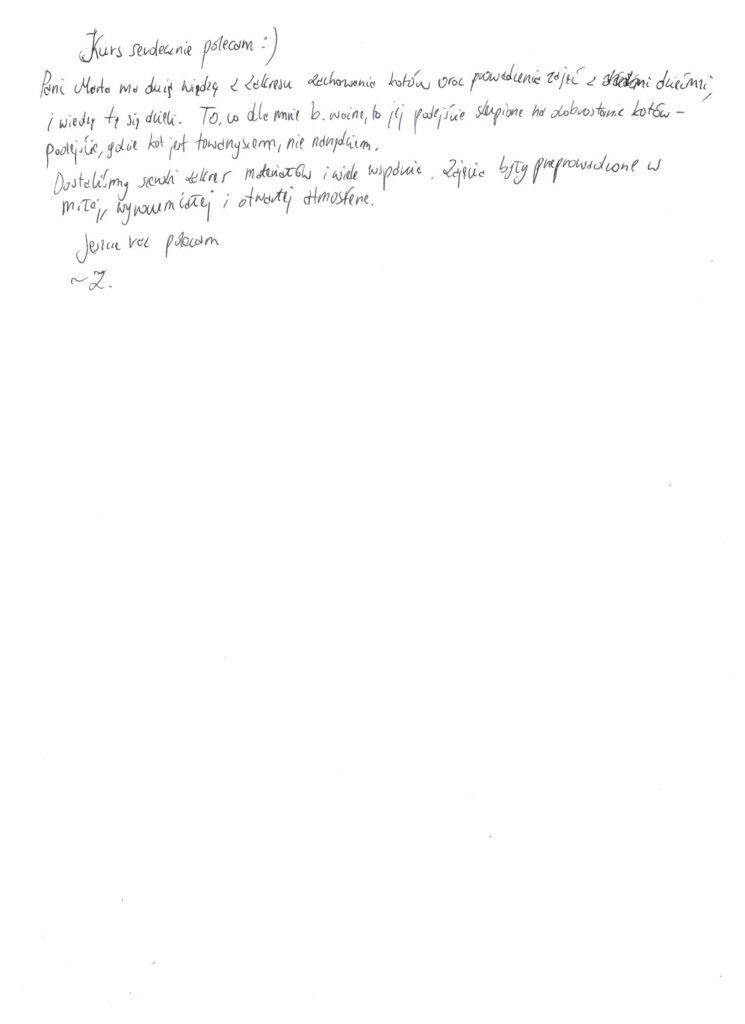 Kurs serdecznie polecam :)
Pani Marta ma dużą wiedzę z zakresu zachowania kotów oraz prowadzenia zajęć z dziećmi,
i wiedzą tą się dzieli. To, co dla mnie b. ważne, to jej podejście skupione na dobrostanie kotów –
podejście, gdzie kot jest towarzyszem, nie narzędziem.
Dostaliśmy szeroki zakres materiałów i wiele wsparcia. Zajęcia były przeprowadzone w
miłej, wyrozumiałej i otwartej atmosferze.
Jeszcze raz polecam
~Z.